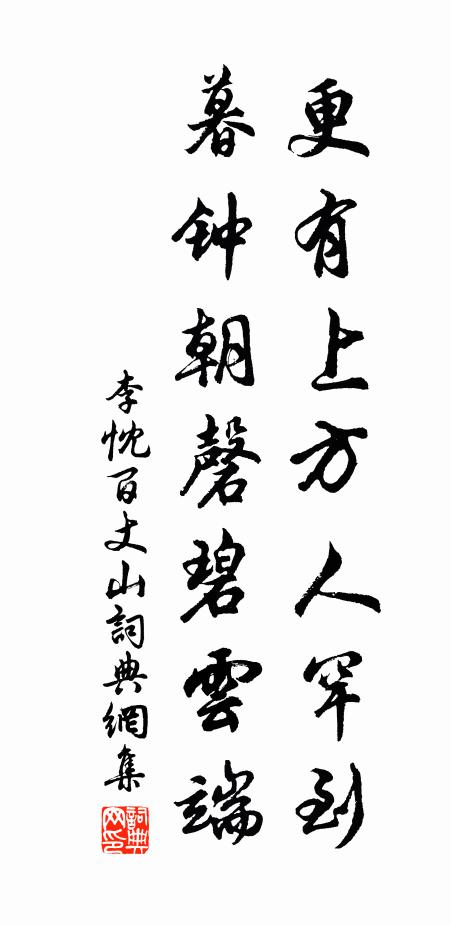 更有上方人罕到
暮钟朝磬碧雲端
李忱百丈山詞典網集
詞典網印